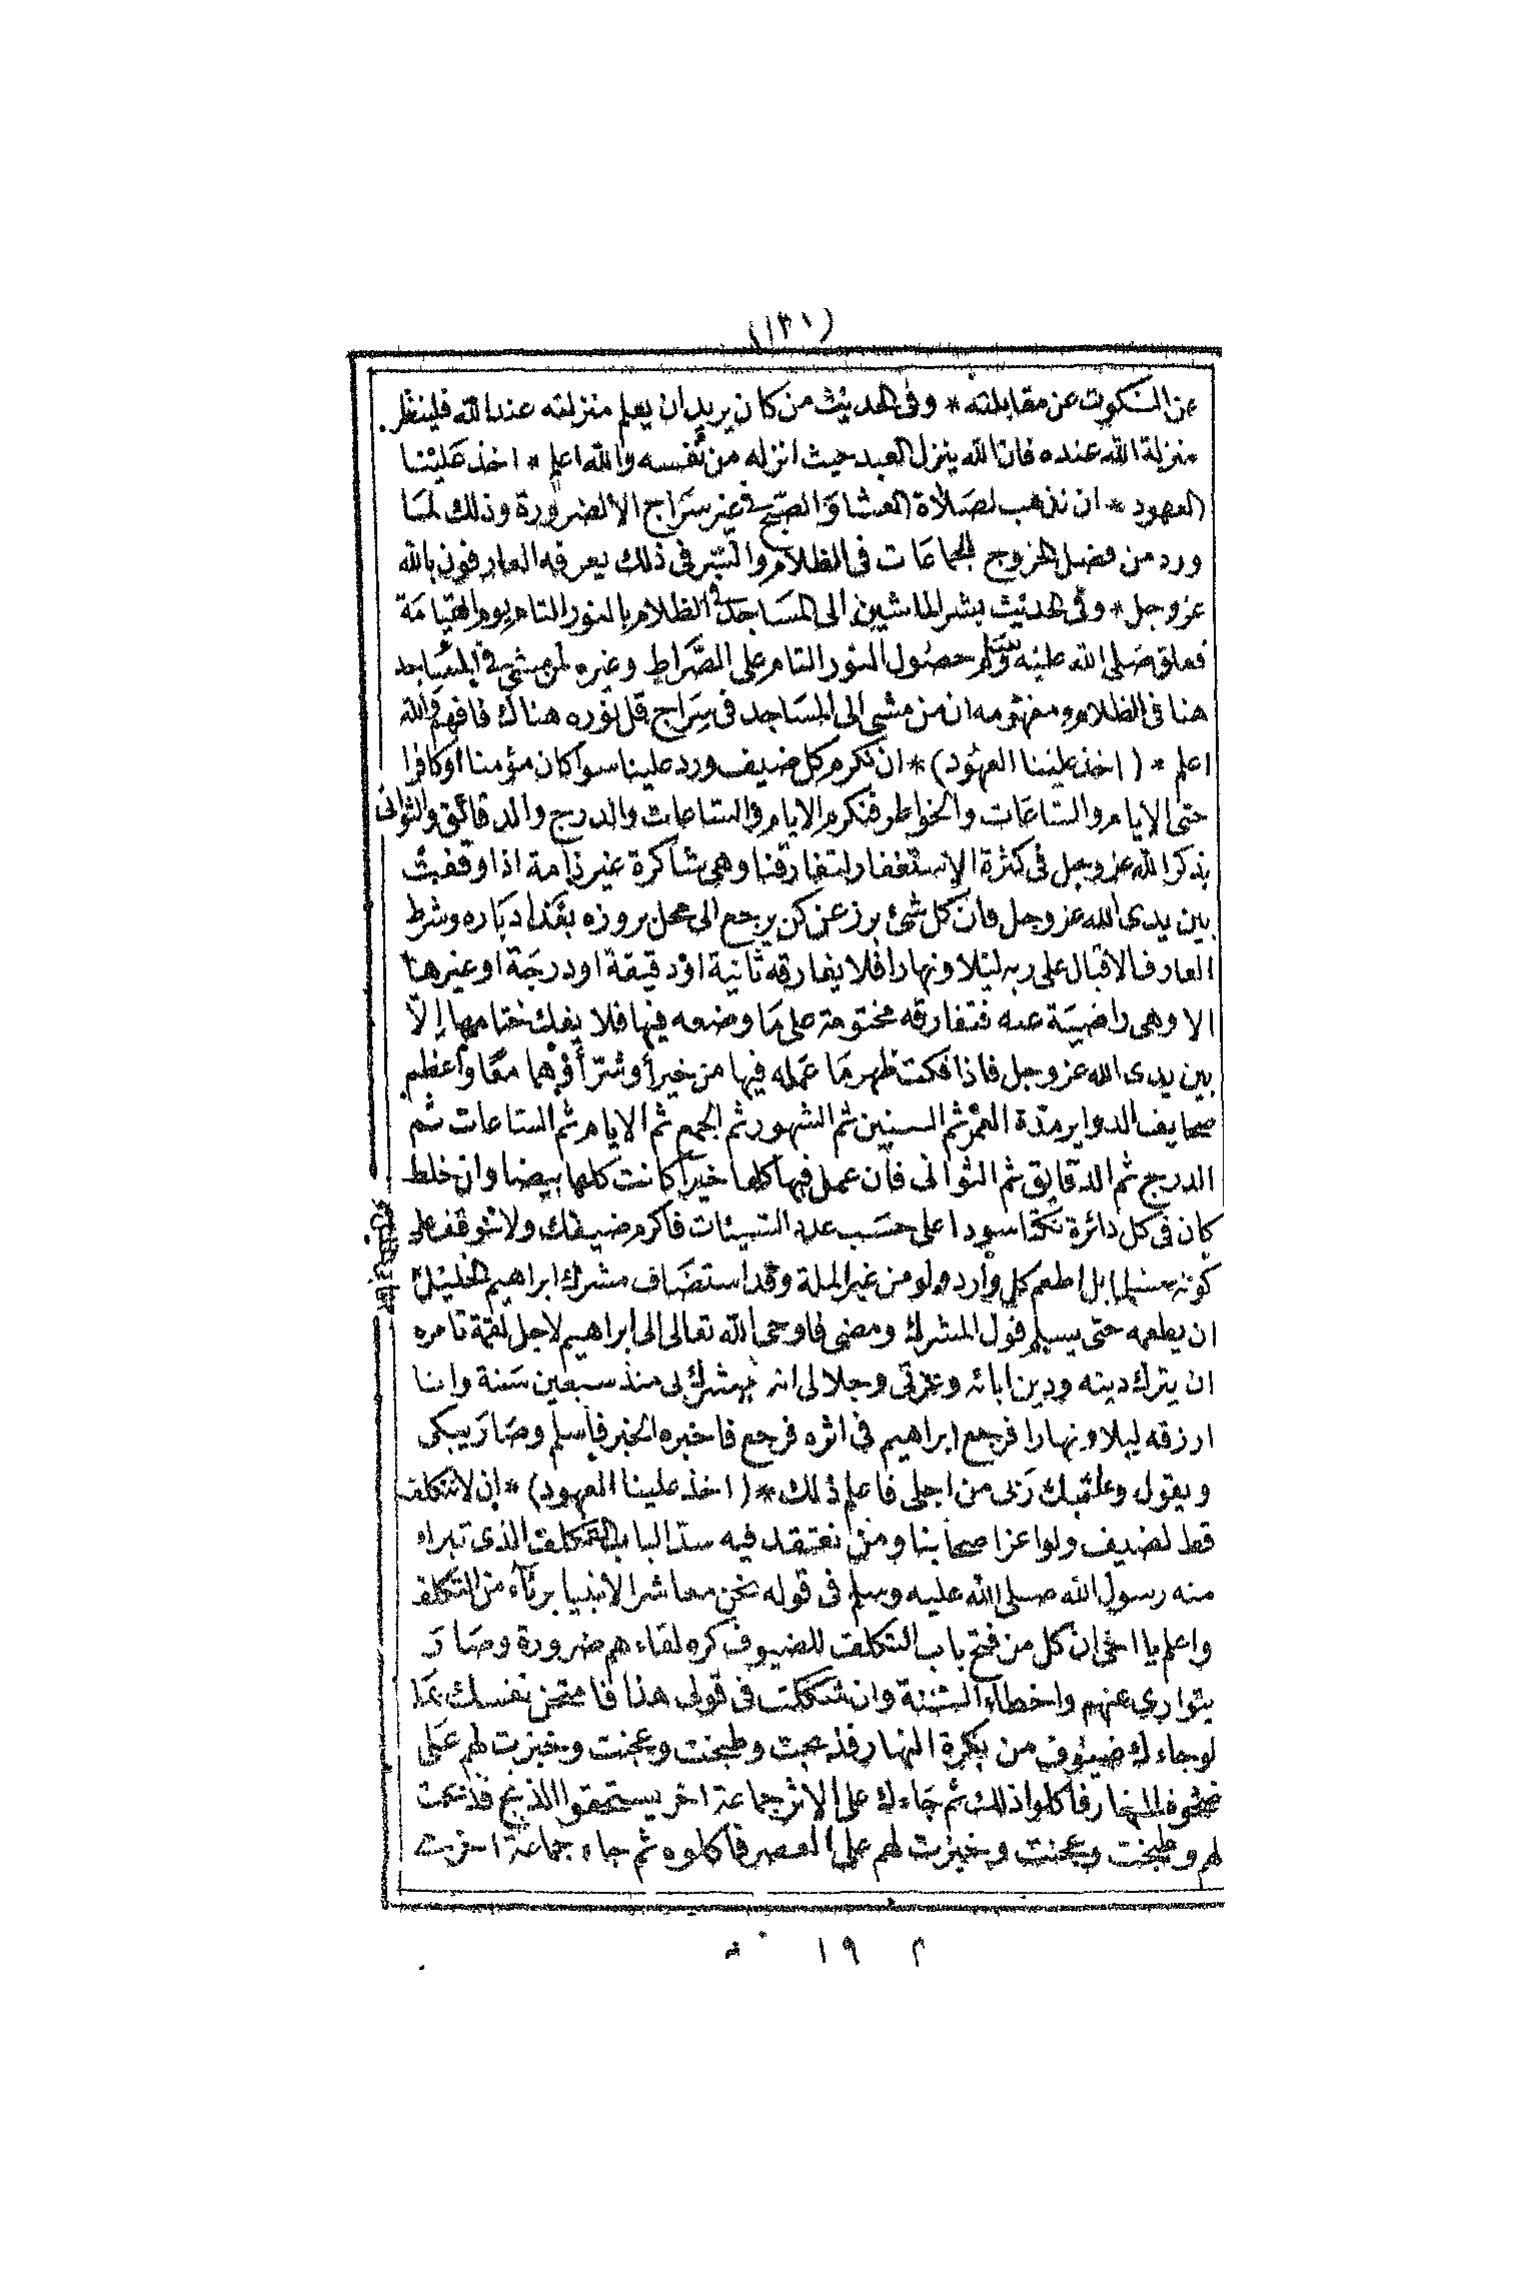 (١٣١)
عن السكوت عن مقابلته * وفى الحديث من كان يريد ان يعلم منزلته عند الله فلينظر
منزلة الله عنده فان الله ينزل العبد حيث انزله من نفسه والله اعلم * اخذ علينا
العهود * ان نذهب لصلاة العشا والصبح فى غير سراج الا لضرورة وذلك لما
ورد من فضل الخروج للجماعات فى الظلام والسر فى ذلك يعرفه العارفون بالله
عز وجل * وفى الحديث بشر الماشين الى المساجد فى الظلام بالنور التام يوم القيامة
فعلق صلى الله عليه وسلم حصول النور التام على الصراط وغيره لمن مشى فى المساجد
هنا فى الظلام ومفهومه ان من مشى الى المساجد فى سراج قل نوره هناك فافهم والله
اعلم * (اخذ علينا العهود) * ان نكرم كل ضيف ورد علينا سوا كان مؤمنا او كافرا
حتى الايام والساعات والخواطر فنكرم الايام والساعات والدرج والدقائق والثوانى
بذكر الله عز وجل فى كثرة الاستغفار لتفارقنا وهى شاكرة غير ذامة اذا وقفت
بين يدى الله عز وجل فان كل شئ برز عن كن يرجع الى محل بروزه بقدر ادباره وشرط
العارف الاقبال على ربه ليلا ونهارا فلا يفارقه ثانية او دقيقة او درجة او غيرها
الا وهى راضية عنه فتفارقه مختومة على ما وضعه فيها فلا يفك ختامها الّا
بين يدى الله عز وجل فاذا فكت ظهر ما عمله فيها من خير أو شرّ أو هما معا وأعظم
صحايف الدواير مدّة العمر ثم السنين ثم الشهور ثم الجمع ثم الايام ثم الساعات ثم
الدرج ثم الدقايق ثم الثوانى فان عمل فيها كلها خيرا كانت كلها بيضا وان خلط
كان فى كل دائرة نكتا سودا على حسب عدد السيئات فاكرم ضيفك ولا تتوقف على
كونه مسلما بل اطعم كل وارد ولو من غير الملة وقد استضاف مشرك ابراهيم الخليل
ان يطعمه حتى يسلم فولى المشرك ومضى فاوحى الله تعالى الى ابراهيم لاجل لقمة تامره
ان يترك دينه ودين ابائه وعزتى وجلالى انه يشرك بى منذ سبعين سنة وانا
ارزقه ليلا ونهارا فرجع ابراهيم فى اثره فرجع فاخبره الخبر فأسلم وصار يبكى
ويقول وعاتبك ربى من اجلى فاعلم ذلك * (اخذ علينا العهود) * ان لا نتكلف
قط لضيف ولو اعز اصحابنا ومن نعتقد فيه سدّ الباب التكلف الذى تبراء
منه رسول الله صلى الله عليه وسلم فى قوله نحن معاشر الانبيا برئآء من التكلف
واعلم يا اخى ان كل من فتح باب التكلف للضيوف كره لقاءهم ضرورة وصار
يتوارى عنهم واخطاء السنة وان شككت فى قولى هذا فامتحن نفسك بما
لو جاءك ضيوف من بكرة النهار فذبحت وطبخت وعجنت وخبزت لهم على
ضحوة النهار فاكلوا ذلك ثم جاءك على الاثر جماعة اخر يستحقوا الذبح فذبحت
لهم وطبخت وعجنت وخبزت لهم على العصر فاكلوه ثم جاء جماعة اخرت
١٩ م